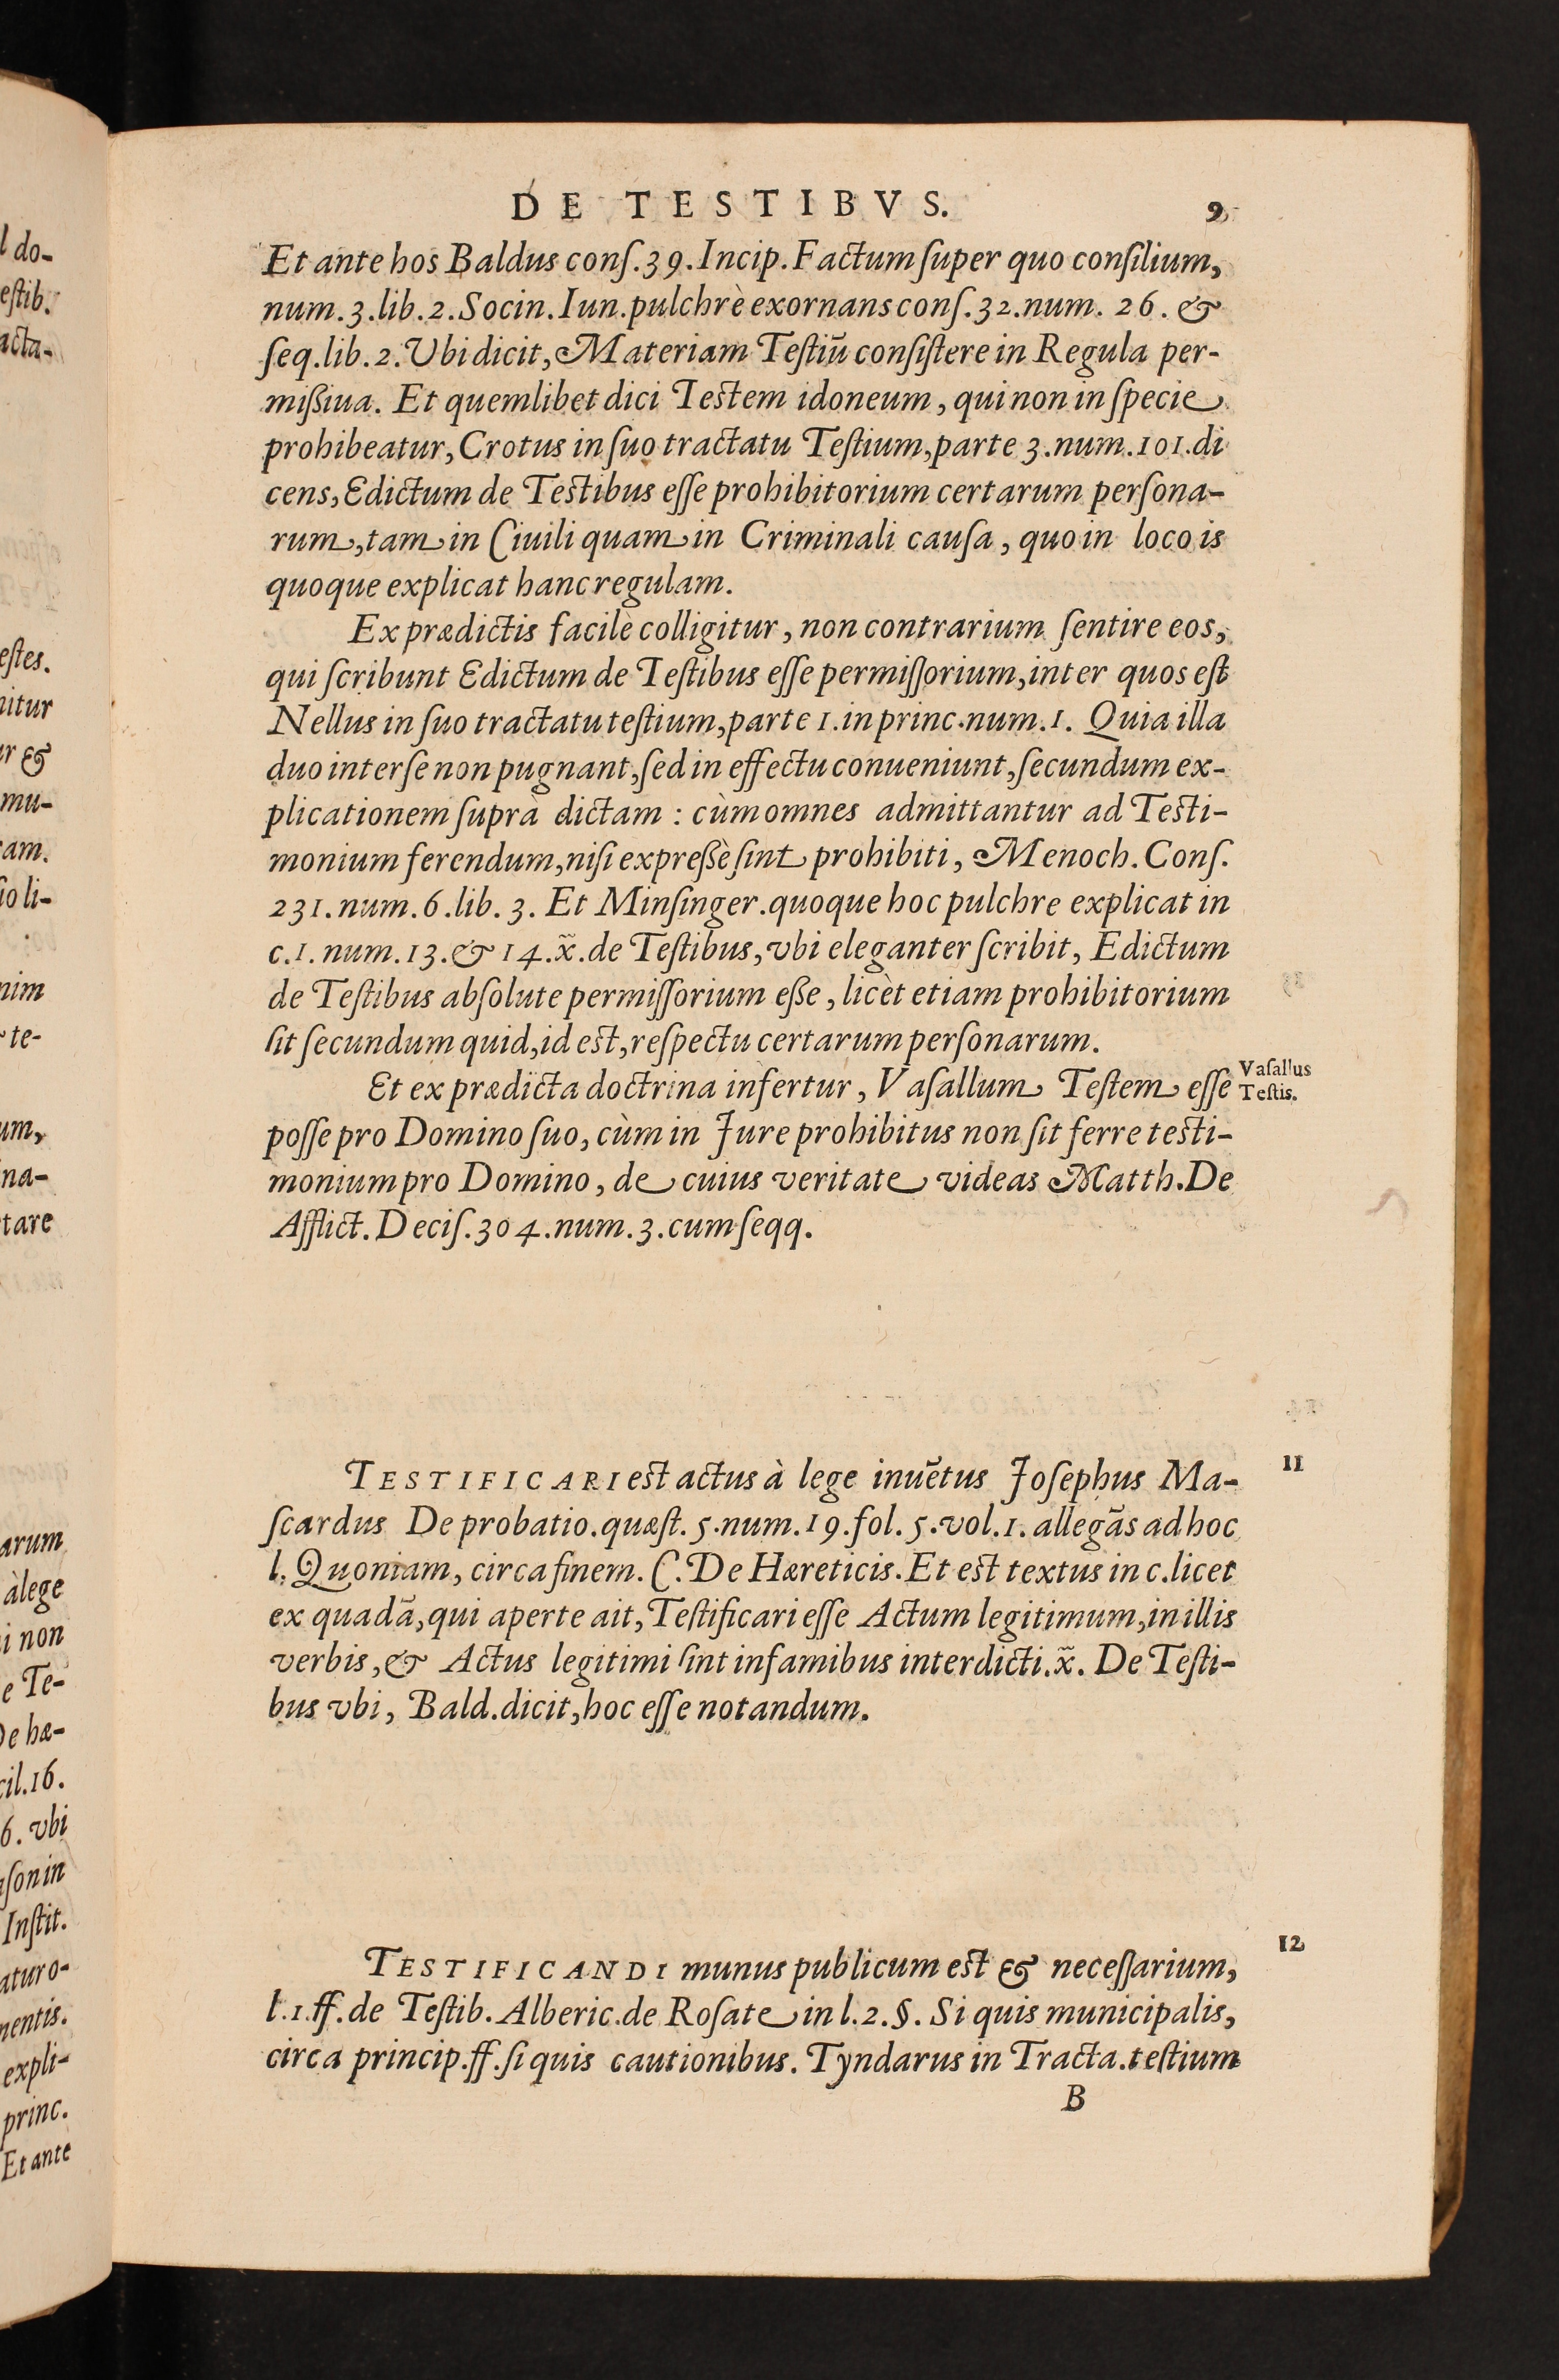 l do-
estib.
acta-
estes.
nitur
ur &
mu-
am.
io li-
nim
te-
um,
na-
tare
arum
à lege
i non
e Te-
De hæ-
cil.16.
6. vbi
ason in
Instit.
atur o-
mentis.
expli-
princ.
Et ante
DE TESTIBVS. 9
Et ante hos Baldus conſ.39.Incip.Factum ſuper quo conſilium,
num.3.lib.2.Socin.Iun.pulchrè exornans conſ.32.num. 26. &
ſeq.lib.2.Vbi dicit, Materiam Teſtiū conſiſtere in Regula per-
mißiua. Et quemlibet dici Teſtem idoneum, qui non in ſpecie
prohibeatur, Crotus in ſuo tractatu Teſtium, parte 3.num.101.di
cens, Edictum de Teſtibus eſſe prohibitorium certarum perſona-
rum, tam in Ciuili quam in Criminali cauſa, quo in loco is
quoque explicat hanc regulam.
Ex prædictis facilè colligitur, non contrarium ſentire eos,
qui ſcribunt Edictum de Teſtibus eſſe permiſſorium, inter quos eſt
Nellus in ſuo tractatu teſtium, parte 1.in princ.num.1. Quia illa
duo inter ſe non pugnant, ſed in effectu conueniunt, ſecundum ex-
plicationem ſuprà dictam : cùm omnes admittantur ad Teſti-
monium ferendum, niſi expreßè ſint prohibiti, Menoch. Conſ.
231.num.6.lib. 3. Et Minſinger.quoque hoc pulchre explicat in
c.1. num.13.& 14.x̃.de Teſtibus, vbi eleganter ſcribit, Edictum
de Teſtibus abſolute permiſſorium eße, licèt etiam prohibitorium
ſit ſecundum quid, id eſt, reſpectu certarum perſonarum.
Et ex prædicta doctrina infertur, Vaſallum Teſtem eſſe
Vaſallus
Teſtis.
poſſe pro Domino ſuo, cùm in Jure prohibitus non ſit ferre teſti-
monium pro Domino, de cuius veritate videas Matth.De
Afflict. Deciſ.304.num.3.cum ſeqq.
11
TESTIFICARI eſt actus à lege inuētus Joſephus Ma-
ſcardus De probatio.quæſt. 5.num.19.fol. 5.vol.1. allegās ad hoc
l. Quoniam, circa finem. C. De Hæreticis. Et eſt textus in c.licet
ex quadā, qui aperte ait, Teſtificari eſſe Actum legitimum, in illis
verbis, & Actus legitimi ſint infamibus interdicti.x̃. De Teſti-
bus vbi, Bald.dicit, hoc eſſe notandum.
12
TESTIFICANDI munus publicum eſt & neceſſarium,
l.1.ff.de Teſtib. Alberic.de Roſate in l.2.§. Si quis municipalis,
circa princip.ff.ſi quis cautionibus. Tyndarus in Tracta.teſtium
B